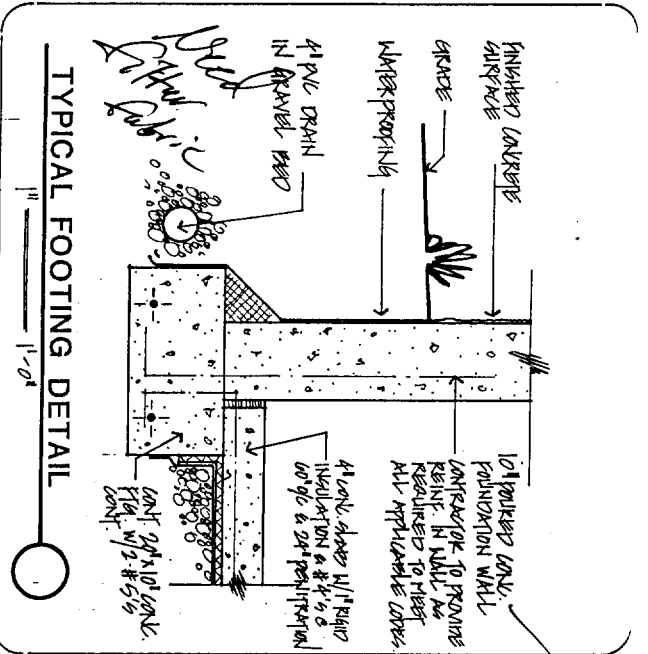 FINISHED CONCRETE
SURFACE
GRADE
WATERPROOFING
4" PVC DRAIN
IN GRAVEL BED
Need
Filter
Fabric
10" POURED CONC.
FOUNDATION WALL
CONTRACTOR TO PROVIDE
REINF. IN WALL AS
REQUIRED TO MEET
ALL APPLICABLE CODES
4" CONC. SLAB W/ 1" RIGID
INSULATION & #4's @
60" O/C & 24" PENETRATION
CONT. 20"x10" CONC.
FTG. W/ 2-#5's
CONT.
TYPICAL FOOTING DETAIL
1" 1'-0"